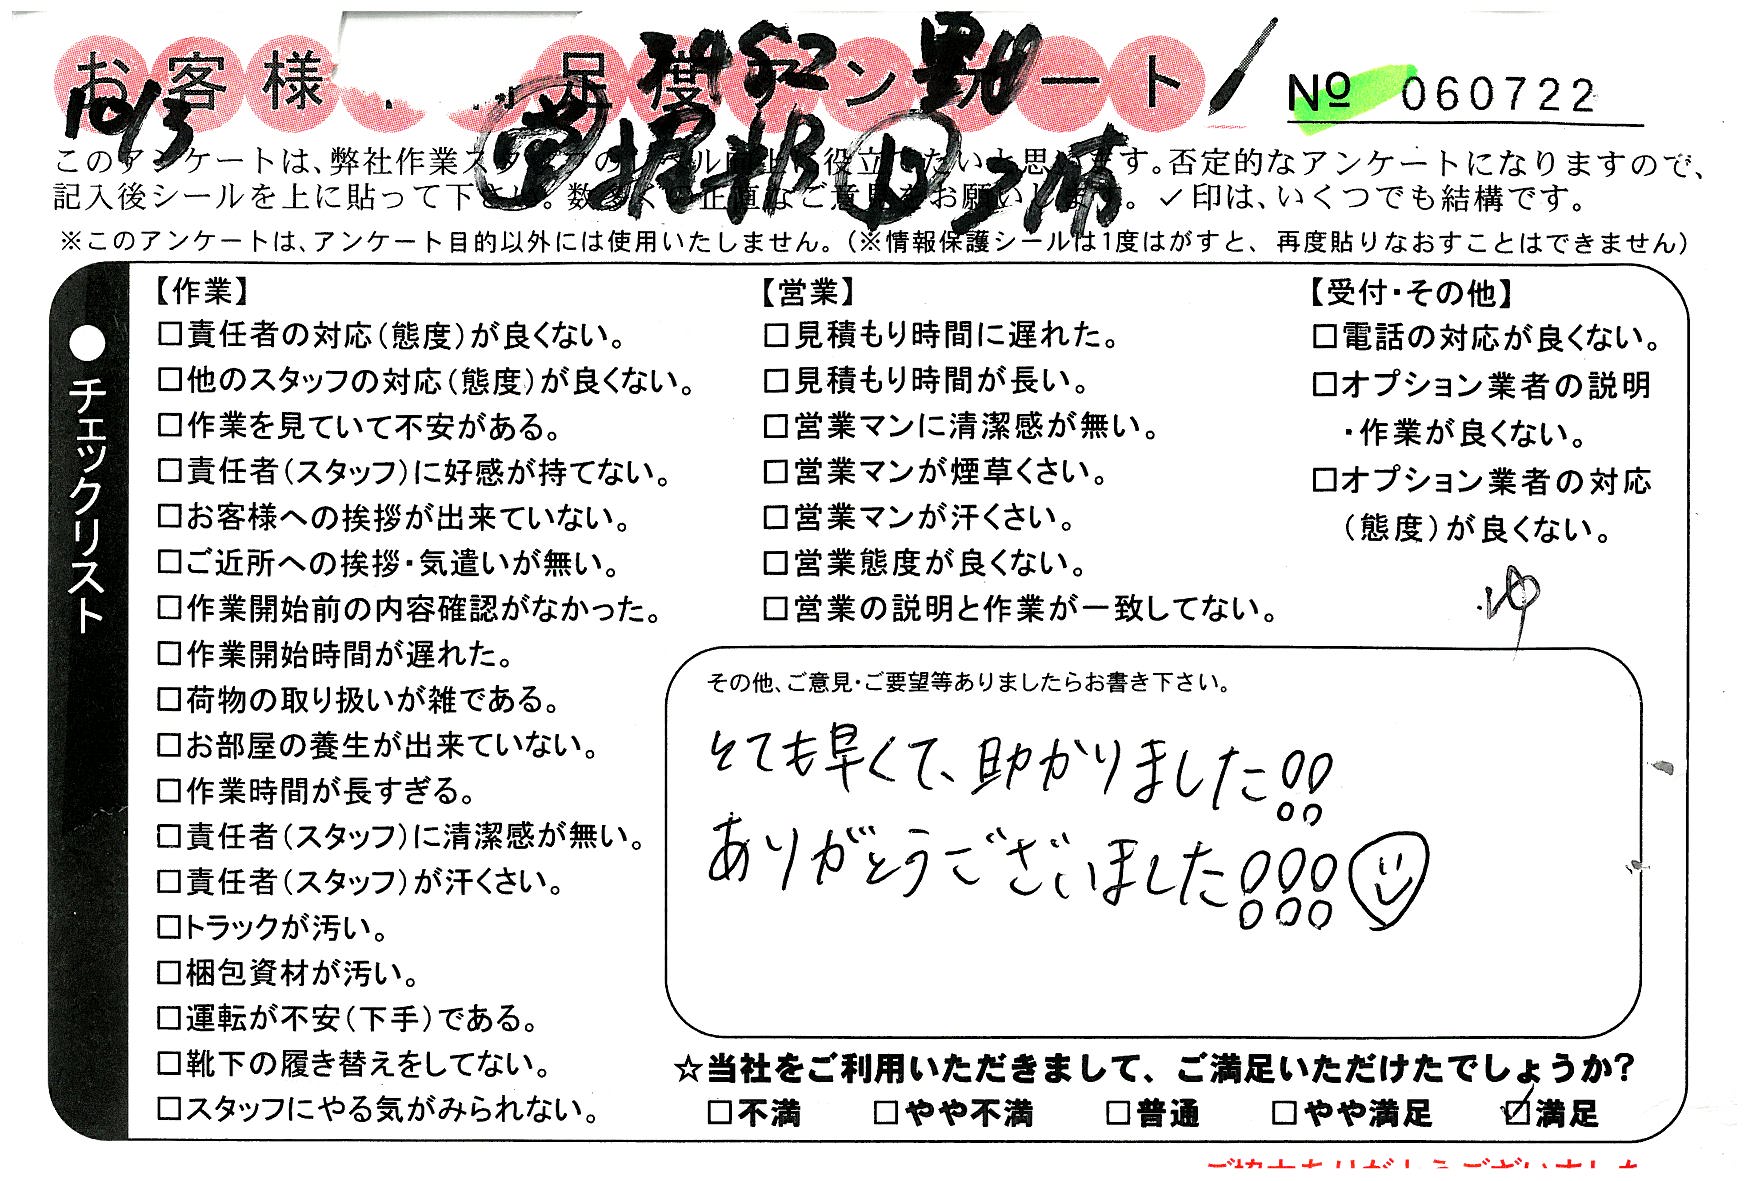 お客様 足度アンケート
10/3
№ 060722
このアンケートは、弊社作業スタッフのレベル向上に役立てたいと思います。否定的なアンケートになりますので、
記入後シールを上に貼って下さい。数多くの正直なご意見をお願いします。✓印は、いくつでも結構です。
※このアンケートは、アンケート目的以外には使用いたしません。（※情報保護シールは1度はがすと、再度貼りなおすことはできません）
●チェックリスト
【作業】
□責任者の対応（態度）が良くない。
□他のスタッフの対応（態度）が良くない。
□作業を見ていて不安がある。
□責任者（スタッフ）に好感が持てない。
□お客様への挨拶が出来ていない。
□ご近所への挨拶・気遣いが無い。
□作業開始前の内容確認がなかった。
□作業開始時間が遅れた。
□荷物の取り扱いが雑である。
□お部屋の養生が出来ていない。
□作業時間が長すぎる。
□責任者（スタッフ）に清潔感が無い。
□責任者（スタッフ）が汗くさい。
□トラックが汚い。
□梱包資材が汚い。
□運転が不安（下手）である。
□靴下の履き替えをしてない。
□スタッフにやる気がみられない。
【営業】
□見積もり時間に遅れた。
□見積もり時間が長い。
□営業マンに清潔感が無い。
□営業マンが煙草くさい。
□営業マンが汗くさい。
□営業態度が良くない。
□営業の説明と作業が一致してない。
【受付・その他】
□電話の対応が良くない。
□オプション業者の説明
・作業が良くない。
□オプション業者の対応
（態度）が良くない。
その他、ご意見・ご要望等ありましたらお書き下さい。
とても早くて、助かりました!!
ありがとうございました!!!
☆当社をご利用いただきまして、ご満足いただけたでしょうか?
□不満 □やや不満 □普通 □やや満足 ☑満足
ご協力ありがとうございました